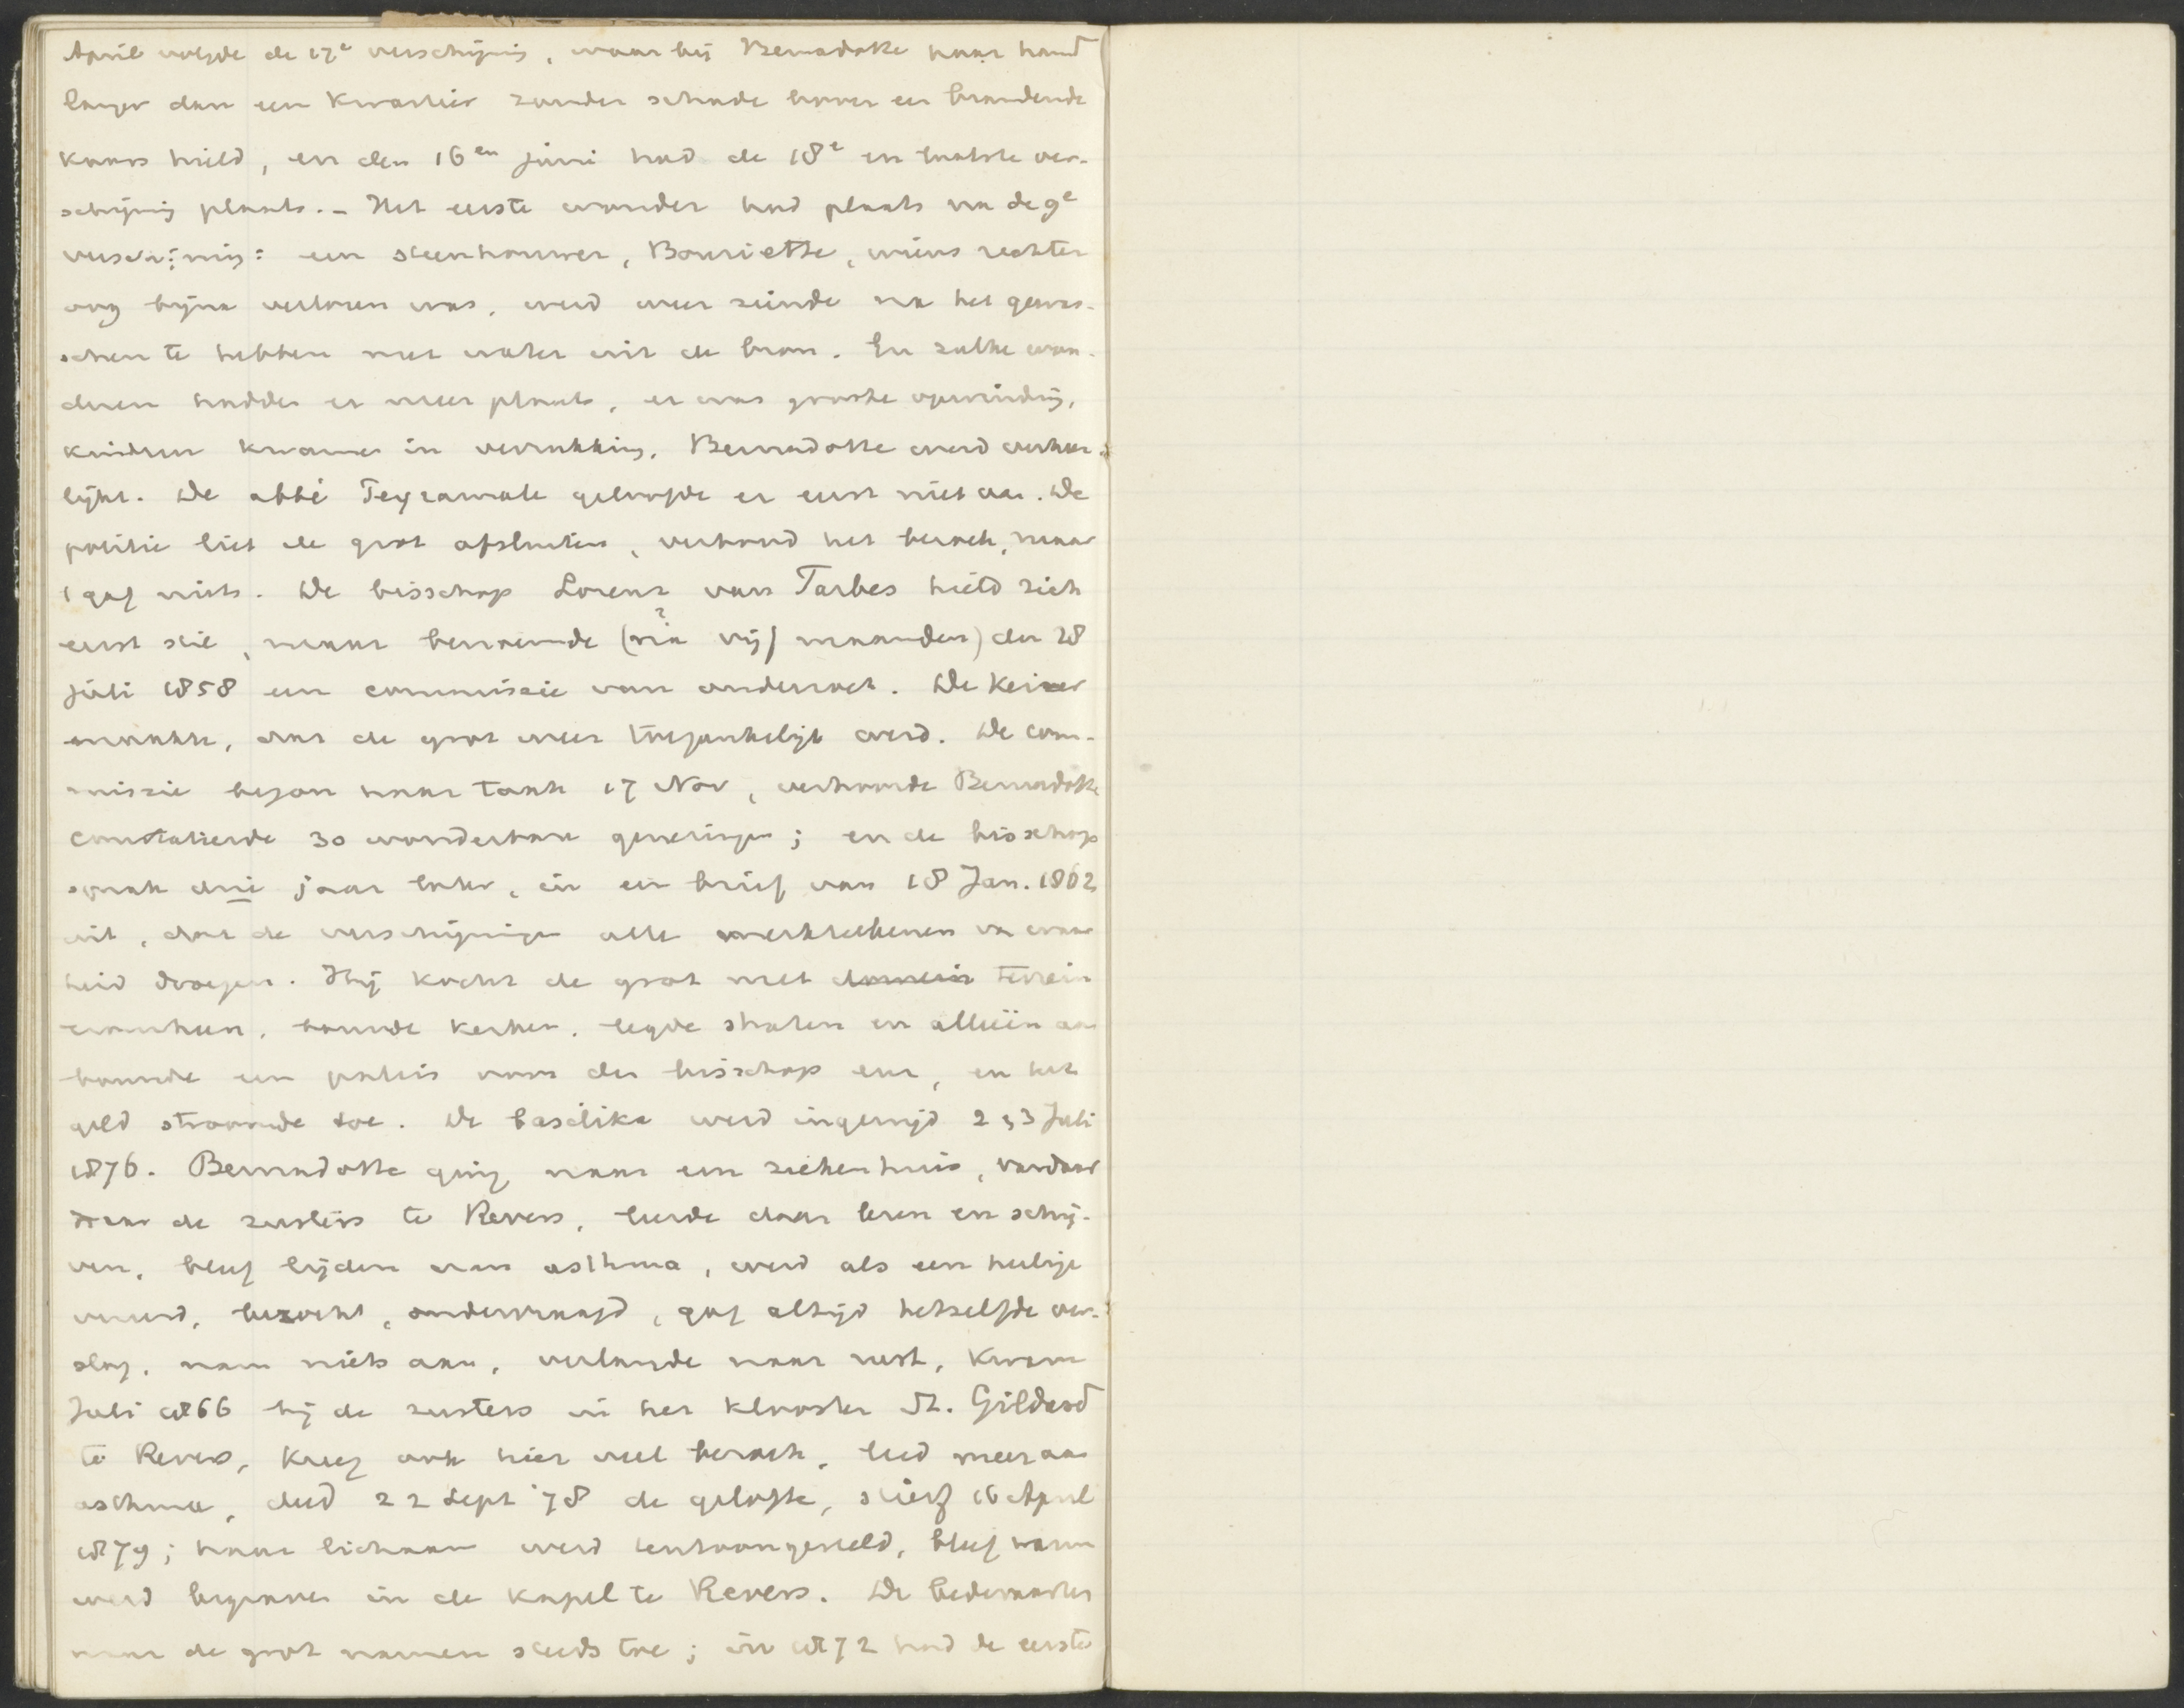 April volgde de 17e verschijning, waar bij Bernadotte haar hand
langer dan een kwartier zonder schade boven een brandende
kaars hield, en den 16en Juni had de 18e en laatste ver-
schijning plaats. - Het eerste wonder had plaats na de 9e
verschijning: een steenhouwer, Bouriette, wiens rechter
oog bijna verloren was, werd weer ziende na het gewas-
schen te hebben met water uit de bron. En zulke won-
deren hadden er meer plaats, er was groote opwinding,
kinderen kwamen in verrukking, Bernadotte werd verheer-
lijkt. De abbé Peyramale geloofde er eerst niet aan. De
politie liet de grot afsluiten, verbood het bezoek, maar
't gaf niets. De bisschop Lorenz van Tarbes hield zich
eerst stil, maar benoemde (na vijf maanden) den 28
?
Juli 1858 een commissie van onderzoek. De keizer
maakte, dat de grot weer toegankelijk werd. De com-
missie begon haar taak 17 Nov, verhoorde Bernadotte
constateerde 30 wonderbare genezingen; en de bisschop
sprak drie jaar later, in een brief van 18 Jan. 1862
uit, dat de verschijningen alle merkteekenen van waar
heid droegen. Hij kocht de grot met domein terrein
eromheen, bouwde kerken, legde straten en alleeën aan
bouwde een paleis voor den bisschop enz, en het
geld stroomde toe. De basilika werd ingewijd 2 & 3 Juli
1876. Bernadotte ging naar een ziekenhuis, vandaar
naar de zusters te Revers, leerde daar lezen en schrij-
ven, bleef lijden aan asthma, werd als een heilige
vereerd, bezocht, ondervraagd, gaf altijd hetzelfde ver-
slag, nam niets aan, verlangde naar rust, kwam
Juli 1866 bij de zusters in het klooster St. Gildard
te Revers, kreeg ook hier veel bezoek, leed meer aan
asthma, deed 22 Sept '78 de gelofte, stierf 16 April
1879; haar lichaam werd tentoongesteld, bleef warm
werd begraven in de kapel te Revers. De bedevaarten
naar de grot namen steeds toe; in 1872 had de eerste